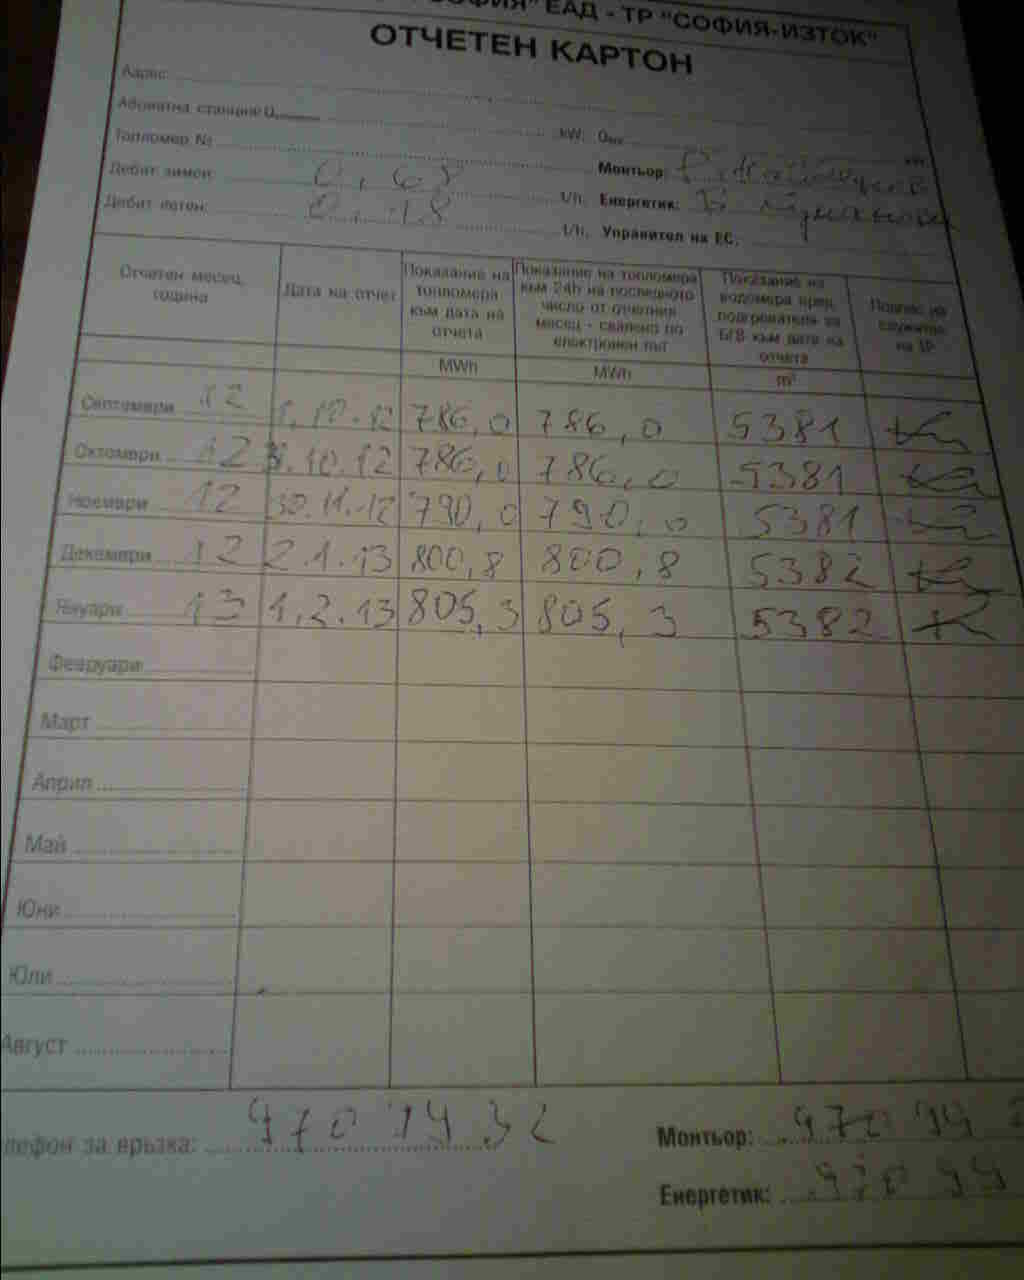 СОФИЯ" ЕАД - ТР "СОФИЯ-ИЗТОК"
ОТЧЕТЕН КАРТОН
Адрес:
Абонатна станция: Q kW; Q kW
Топломер №
Монтьор:
Дебит зимен: 0,68 t/h. Енергетик:
Дебит летен: 0,18 t/h. Управител на ЕС:
Отчетен месец, година
Дата на отчет
Показание на топломера към дата на отчета
Показание на топломера към 24h на последното число от отчетния месец - свалено по електронен път
Показание на водомера пред подгревателя за БГВ към дата на отчета
Подпис на служител на ТР
MWh MWh m³
Септември 12 1.10.12 786,0 786,0 5381
Октомври 12 .10.12 786,0 786,0 5381
Ноември 12 30.11.12 790,0 790,0 5381
Декември 12 2.1.13 800,8 800,8 5382
Януари 13 1.2.13 805,3 805,3 5382
Февруари
Март
Април
Май
Юни
Юли
Август
лефон за връзка: 970 14 32
Монтьор: 970 14
Енергетик: 970